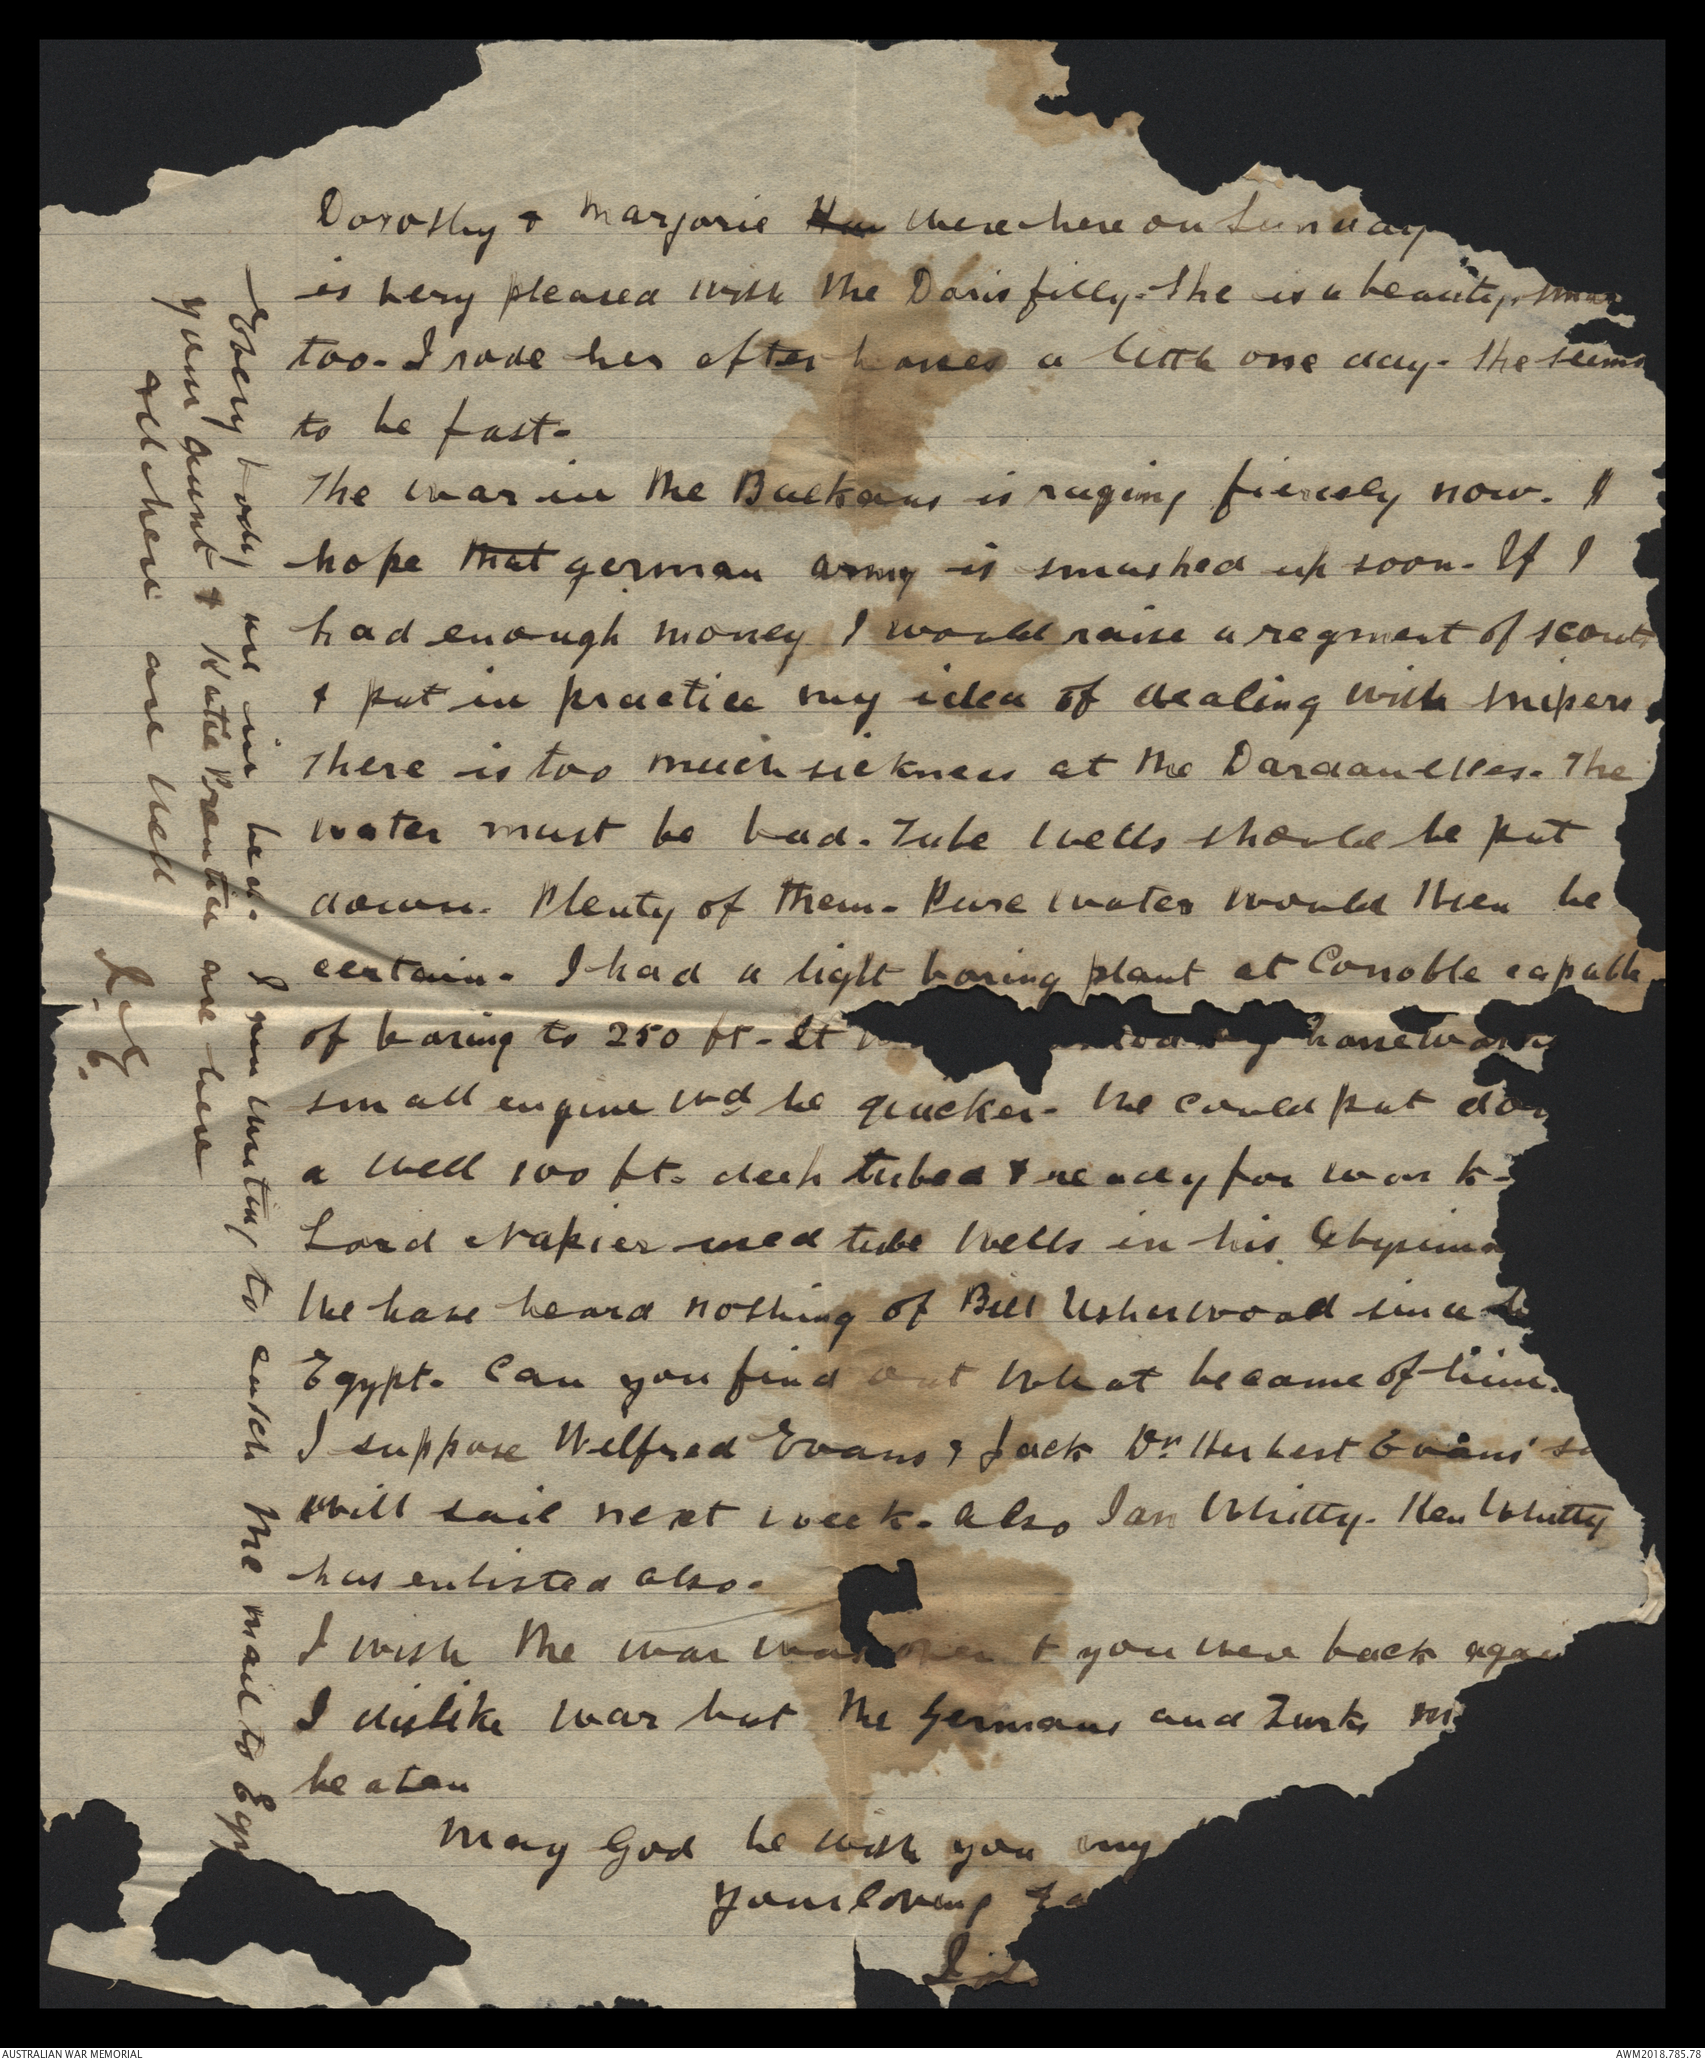 Dorothy & Marjorie were here on Sunday
is very pleased with the Doris filly. She is a beauty.
too. I rode her after horses a little one day. She seems
to be fast.
The war in the Balkans is raging fiercely now. I
hope that german army is smashed up soon. If I
had enough money I would raise a regment of scouts
& put in practice my idea of dealing with snipers
There is too much sickness at the Dardanelles. The
water must be bad. Tube wells should be put
down. Plenty of them. Pure water would then be
certain. I had a light boring plant at Conoble capable
of boring to 250 ft. It
small engine wd be quicker. We could put
a well 100 ft. deep tubed & ready for work.
Lord Napier used tube wells in his
We have heard nothing of Bill Usherwood since
Egypt. Can you find out what became of him.
I suppose Wilfred Evans & Jack Dr. Herbert Evans'
will sail next week. also Ian Whitty. Ken Whitty
has enlisted also.
I wish the war was over & you were back
I dislike war but the Germans and Turks
beaten
May God be with you my
Your loving
Every body are in bed. I am writing to catch the mail to
Your aunt & Katie are here
all here are well
AUSTRALIAN WAR MEMORIAL
AWM2018.785.78